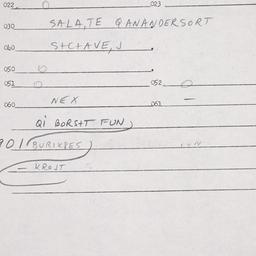 022 023
030 SALA, TE QANANDERSORT
040 S+C+AVE, J
050
051 052
060 NEX 061 —
QI BORS+T FUN
901 BURIKPES
— KROJT